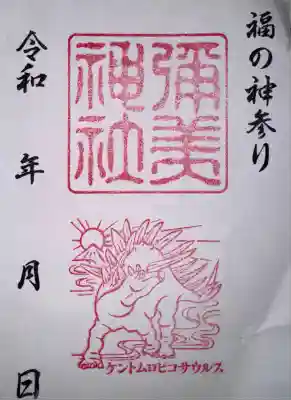 福の神参り
彌美
神社
ケントムロヒコサウルス
令和 年 月 日